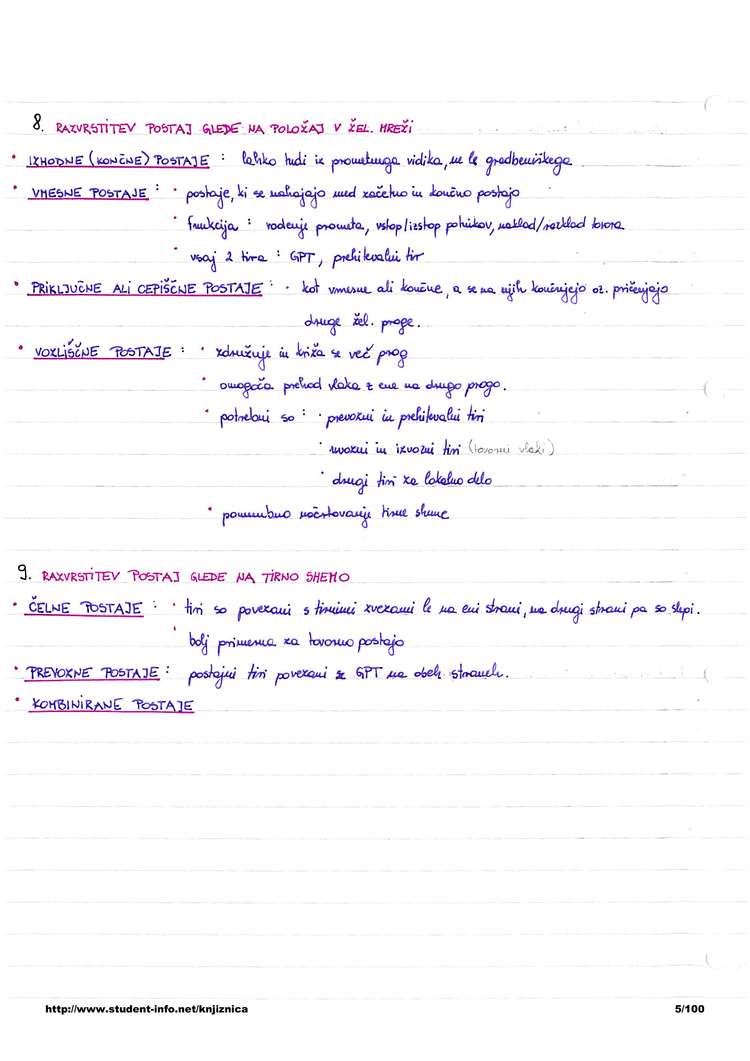 8. RAZVRSTITEV POSTAJ GLEDE NA POLOŽAJ V ŽEL. MREŽI
• IZHODNE (KONČNE) POSTAJE : lahko tudi iz prometnega vidika, ne le gradbeniškega
• VMESNE POSTAJE : • postaje, ki se nahajajo med začetno in končno postajo
• funkcija : vodenje prometa, vstop/izstop potnikov, naklad/razklad tovora
• vsaj 2 tira : GPT, prehitevalni tir
• PRIKLJUČNE ALI CEPIŠČNE POSTAJE : • kot vmesne ali končne, a se na njih končujejo oz. pričenjajo
druge žel. proge.
• VOZLIŠČNE POSTAJE : • združuje in križa se več prog
• omogoča prehod vlaka z ene na drugo progo.
• potrebni so : • prevozni in prehitevalni tiri
• uvozni in izvozni tiri (tovorni vlaki)
• drugi tiri za lokalno delo
• pomembno načrtovanje tirne sheme
9. RAZVRSTITEV POSTAJ GLEDE NA TIRNO SHEMO
• ČELNE POSTAJE : • tiri so povezani s tirnimi zvezami le na eni strani, na drugi strani pa so slepi.
• bolj primerna za tovorno postajo
• PREVOZNE POSTAJE : postajni tiri povezani z GPT na obeh straneh.
• KOMBINIRANE POSTAJE
http://www.student-info.net/knjiznica 5/100